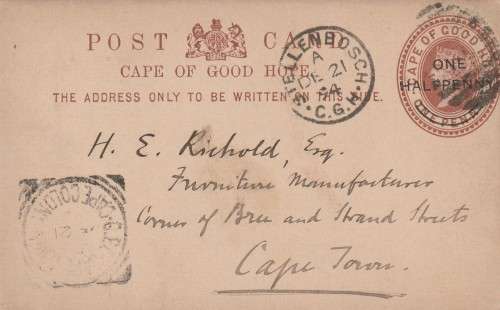 POST CARD
CAPE OF GOOD HOPE.
THE ADDRESS ONLY TO BE WRITTEN ON THIS SIDE.
STELLENBOSCH
A
DE 21
94
C.G.H.
CAPE OF GOOD HOPE
ONE
HALF PENNY
ONE PENNY
H. E. Richold, Esq.
Furniture Manufacturer
Corner of Bree and Strand Streets
Cape Town.
CAPE COLONY
21